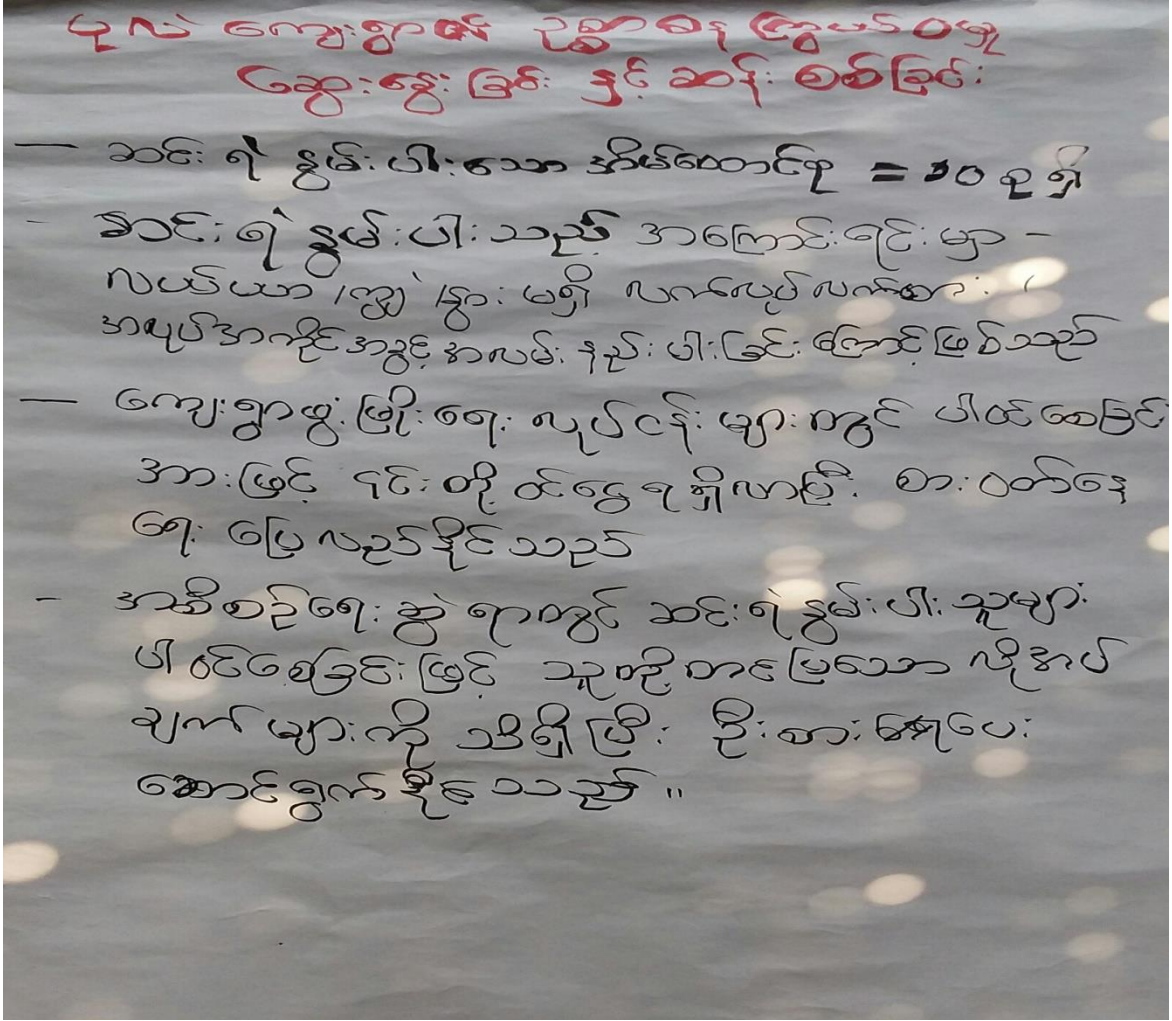 ပုလဲ ကျေးရွာ၏ ဥစ္စာဓန ကြွယ်ဝမှု
ဆွေးနွေးခြင်း နှင့် ဆန်းစစ်ခြင်း
— ဆင်းရဲ နွမ်းပါးသော အိမ်ထောင်စု = ၁၀ စု ရှိ
- ဆင်းရဲ နွမ်းပါးသည့် အကြောင်းရင်း မှာ -
လယ်ယာ /ကျွဲ /နွား မရှိ လက်လုပ်လက်စား /
အလုပ်အကိုင်အခွင့်အလမ်း နည်းပါးခြင်းကြောင့် ဖြစ်သည်
— ကျေးရွာဖွံ့ဖြိုးရေး လုပ်ငန်းများတွင် ပါဝင်စေခြင်း
အားဖြင့် ၎င်းတို့ ဝင်ငွေရရှိလာပြီး စားဝတ်နေ
ရေး ပြေလည်နိုင်သည်
- အစီစဉ်ရေးဆွဲရာတွင် ဆင်းရဲနွမ်းပါးသူများ
ပါဝင်စေခြင်းဖြင့် သူတို့တင်ပြသော လိုအပ်
ချက်များကို သိရှိပြီး ဦးစားပေး
ဆောင်ရွက်နိုင်သည်။